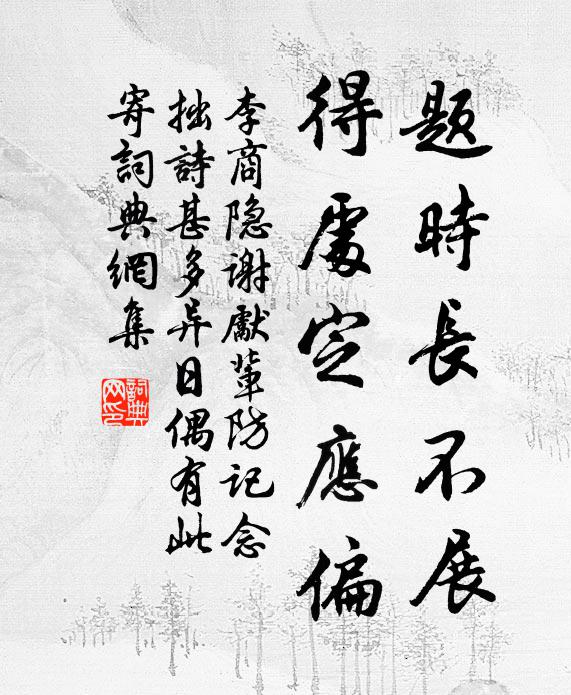 題時長不展
得處定應偏
李商隐谢獻輩防記念
拙詩甚多异日偶有此
寄詞典網集
詞典
网印